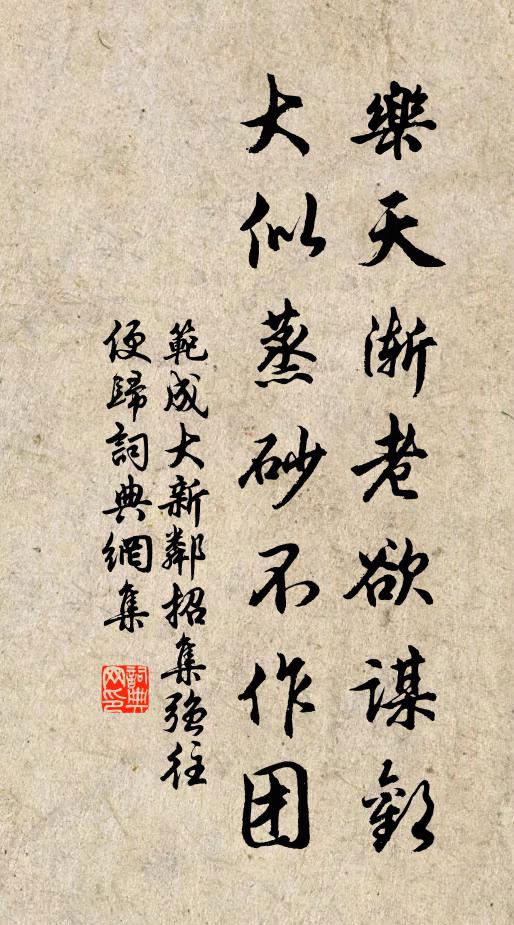 樂天漸老欲謀歡
大似蒸砂不作团
範成大新鄰招集強往
便歸詞典網集
詞典
网印